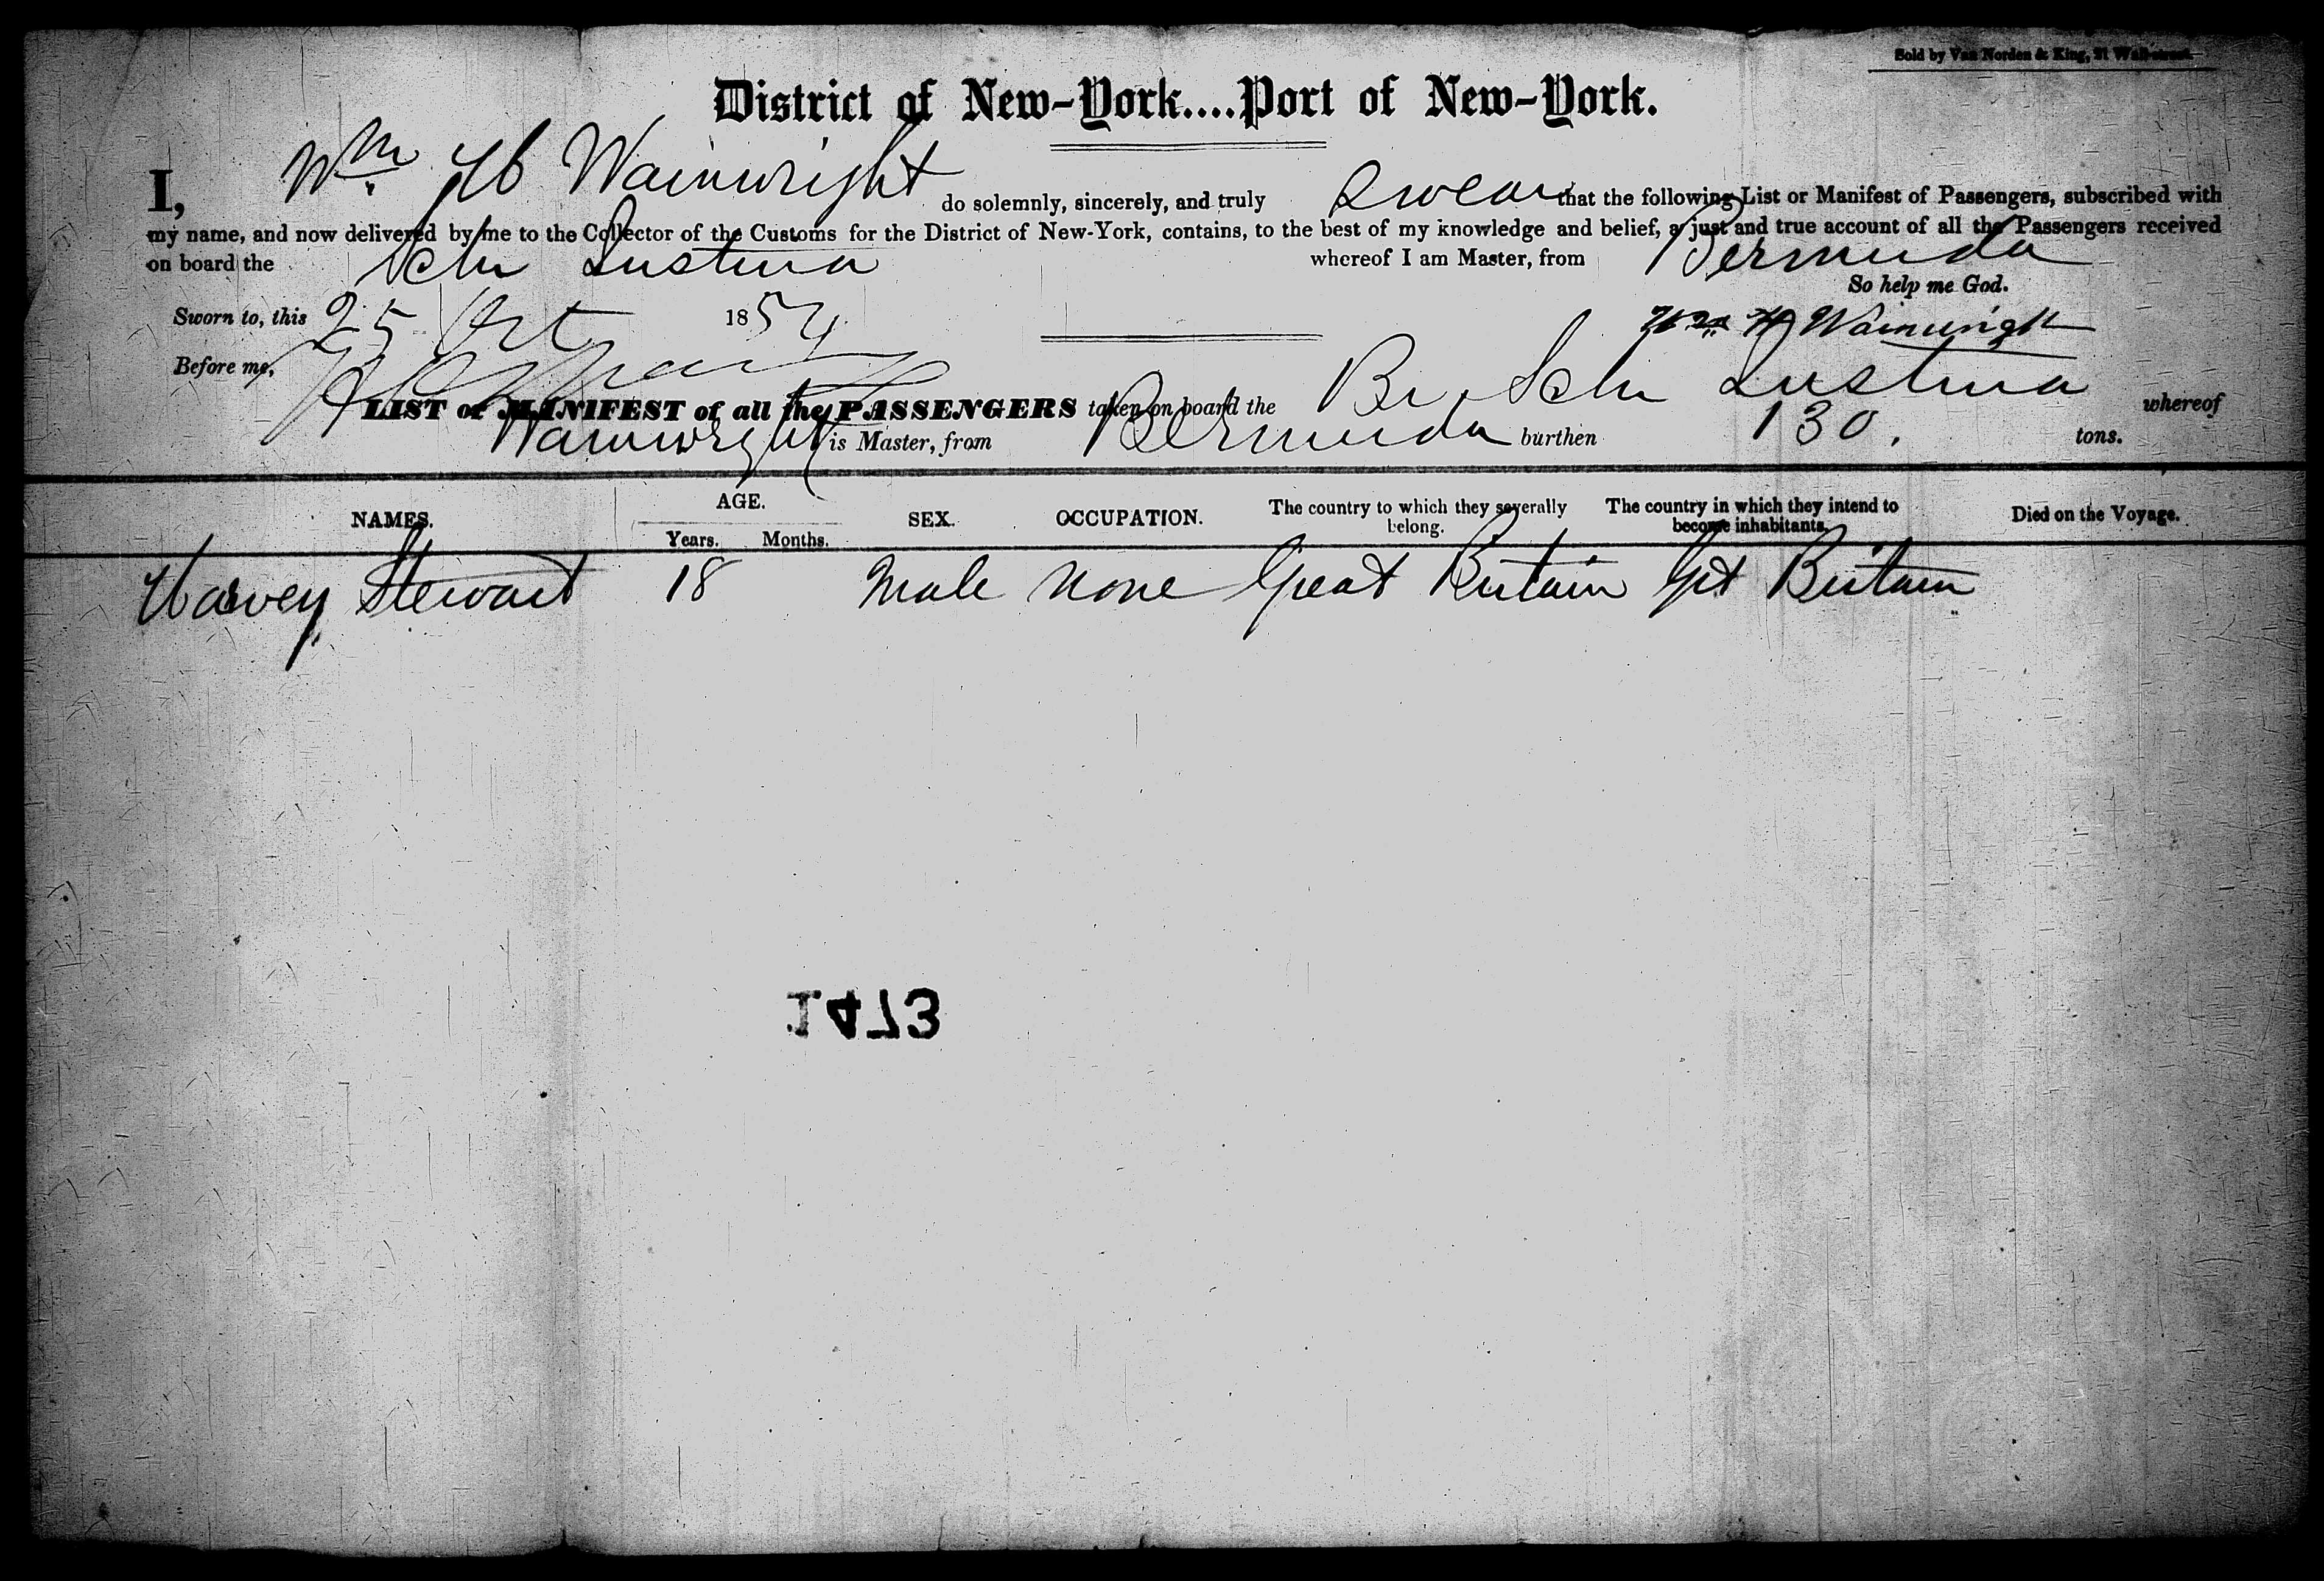 Sold by Van Norden & King, 21 Wall-street
District of New-York....Port of New-York.
I, Wm H Wainwright do solemnly, sincerely, and truly swear that the following List or Manifest of Passengers, subscribed with
my name, and now delivered by me to the Collector of the Customs for the District of New-York, contains, to the best of my knowledge and belief, a just and true account of all the Passengers received
on board the Schr Lustina whereof I am Master, from Bermuda
So help me God.
Sworn to, this 25 Oct 1854
Wm H Wainwright
Before me,
LIST or MANIFEST of all the PASSENGERS taken on board the Br Schr Lustina whereof
Wainwright is Master, from Bermuda burthen 130. tons.
NAMES. AGE. Years. Months. SEX. OCCUPATION. The country to which they severally belong. The country in which they intend to become inhabitants. Died on the Voyage.
Harvey Stewart 18 Male None Great Britain Gt Britain
1473